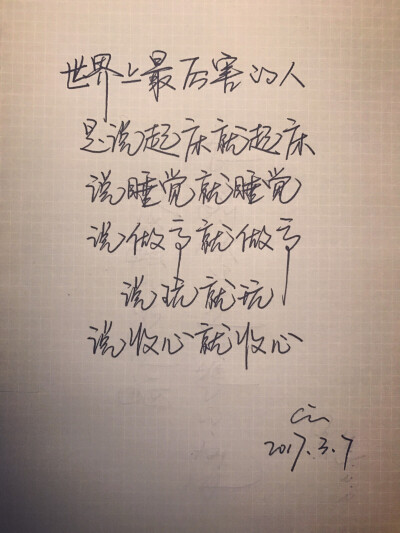 世界上最厉害的人
是说起床就起床
说睡觉就睡觉
说做事就做事
说玩就玩
说收心就收心
2017.3.7